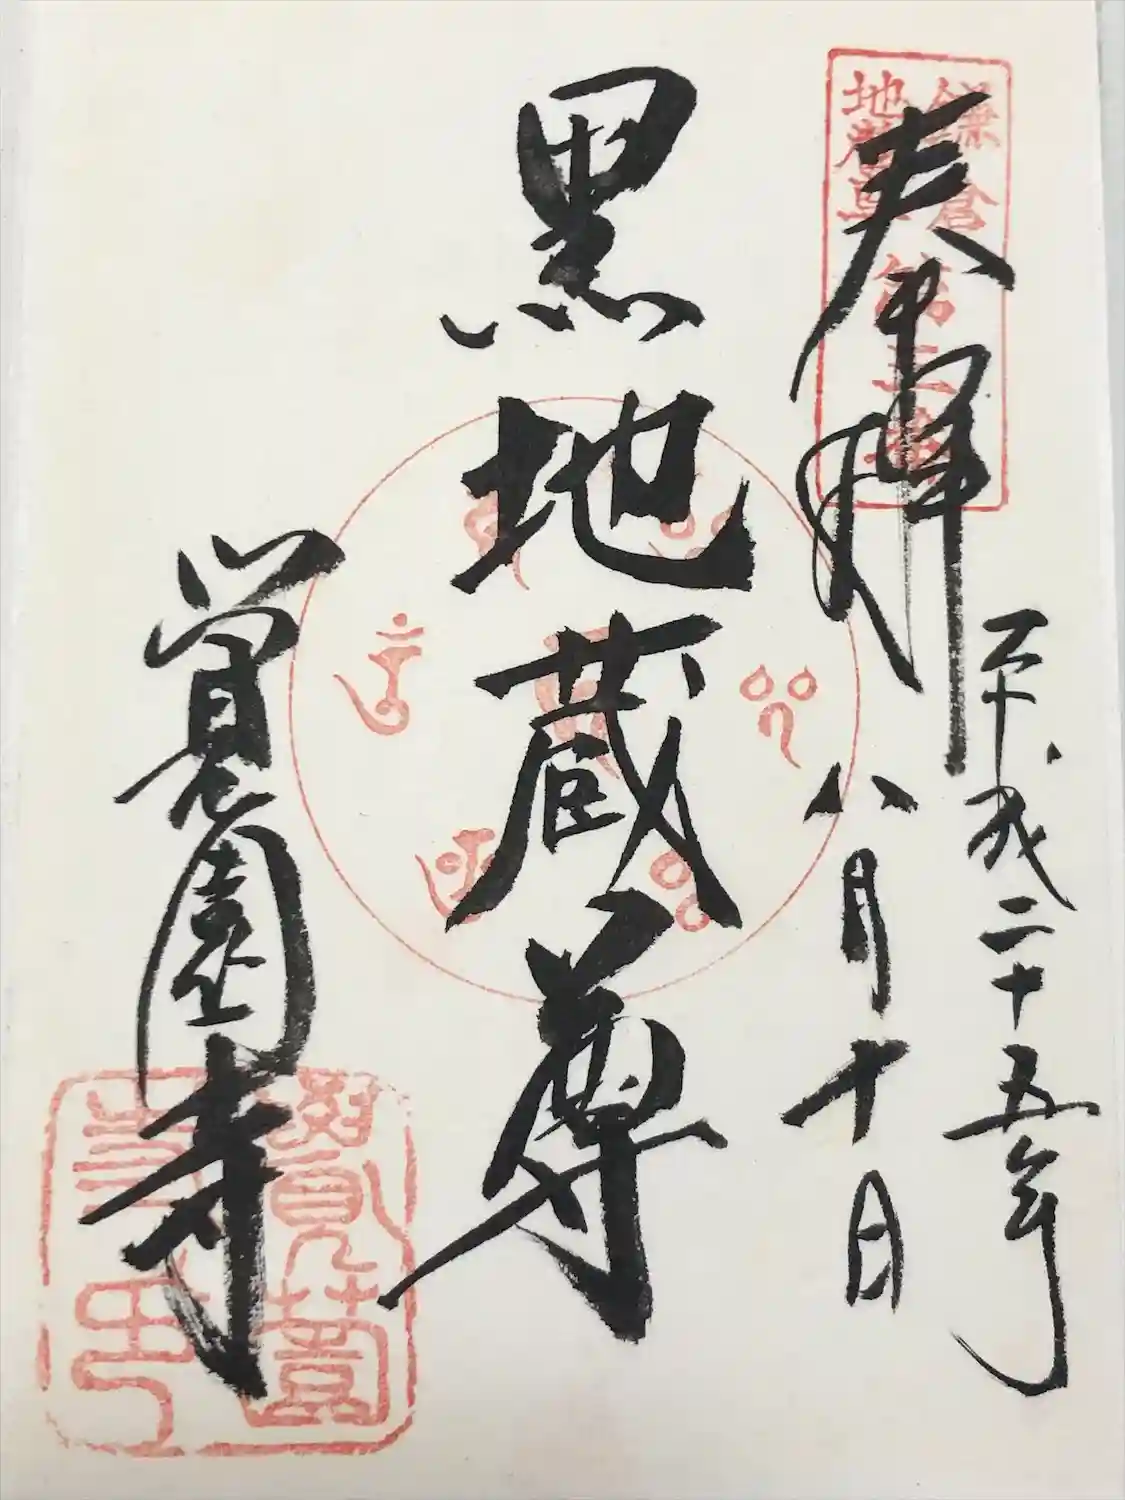 奉拝
平成二十五年
八月十日
鎌倉
地蔵尊
第三番
黒地蔵尊
覚園寺
覺園
寺印